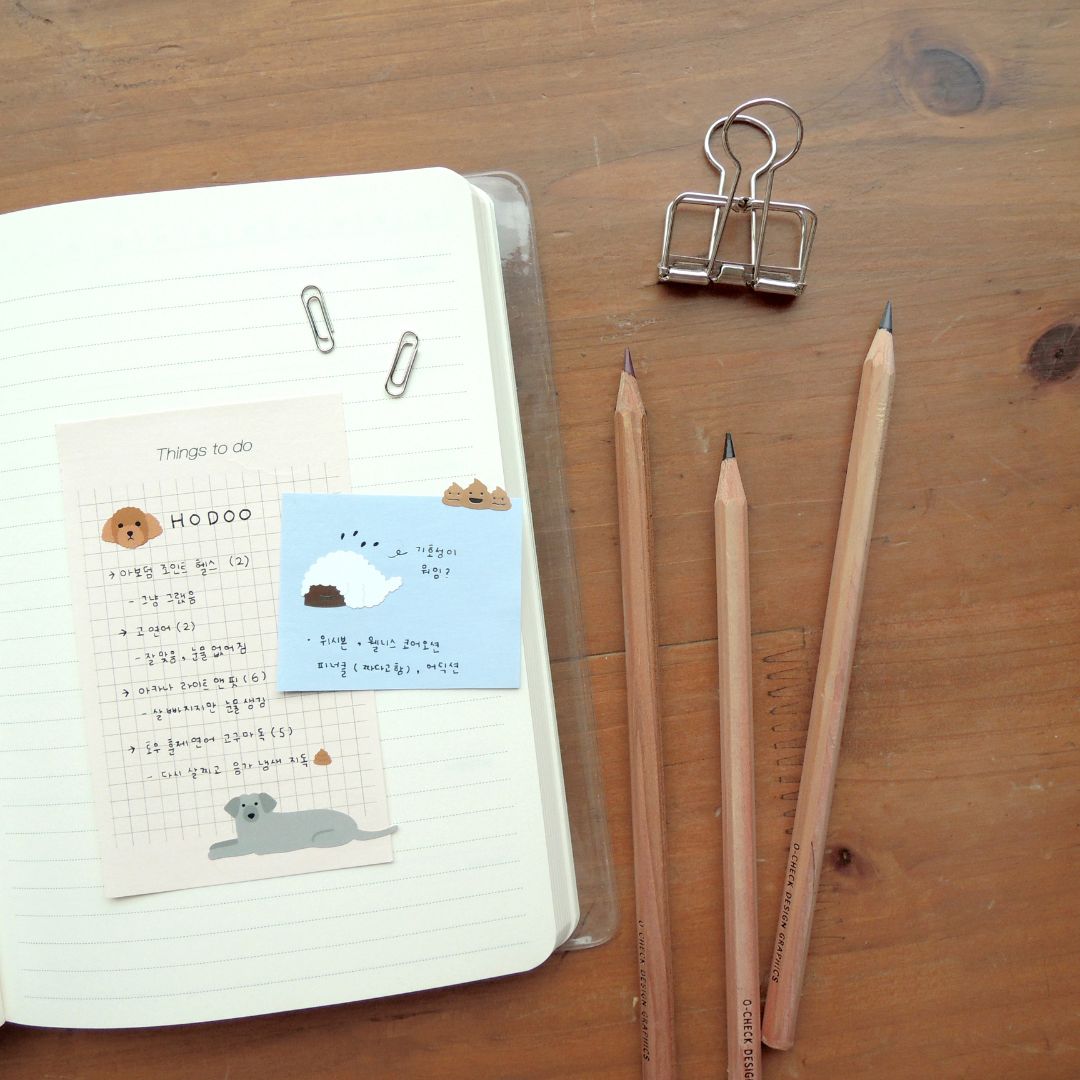 Things to do
HODOO
→ 아보덤 조인트 헬스 (2)
- 그냥 그랬음
→ 고 연어 (2)
- 잘 맞음, 눈물 없어짐
→ 아카나 라이트 앤 핏 (6)
- 살 빠지지만 눈물 생김
→ 도우 훈제연어 고구마 독 (5)
- 다시 살찌고 응가 냄새 지독
기호성이
뭐임?
· 위시본, 웰니스 코어오션
피너클 (짜다고함), 어딕션
O-CHECK DESIGN GRAPHICS
O-CHECK DESIGN
O-CHECK DESIGN GRAPHICS